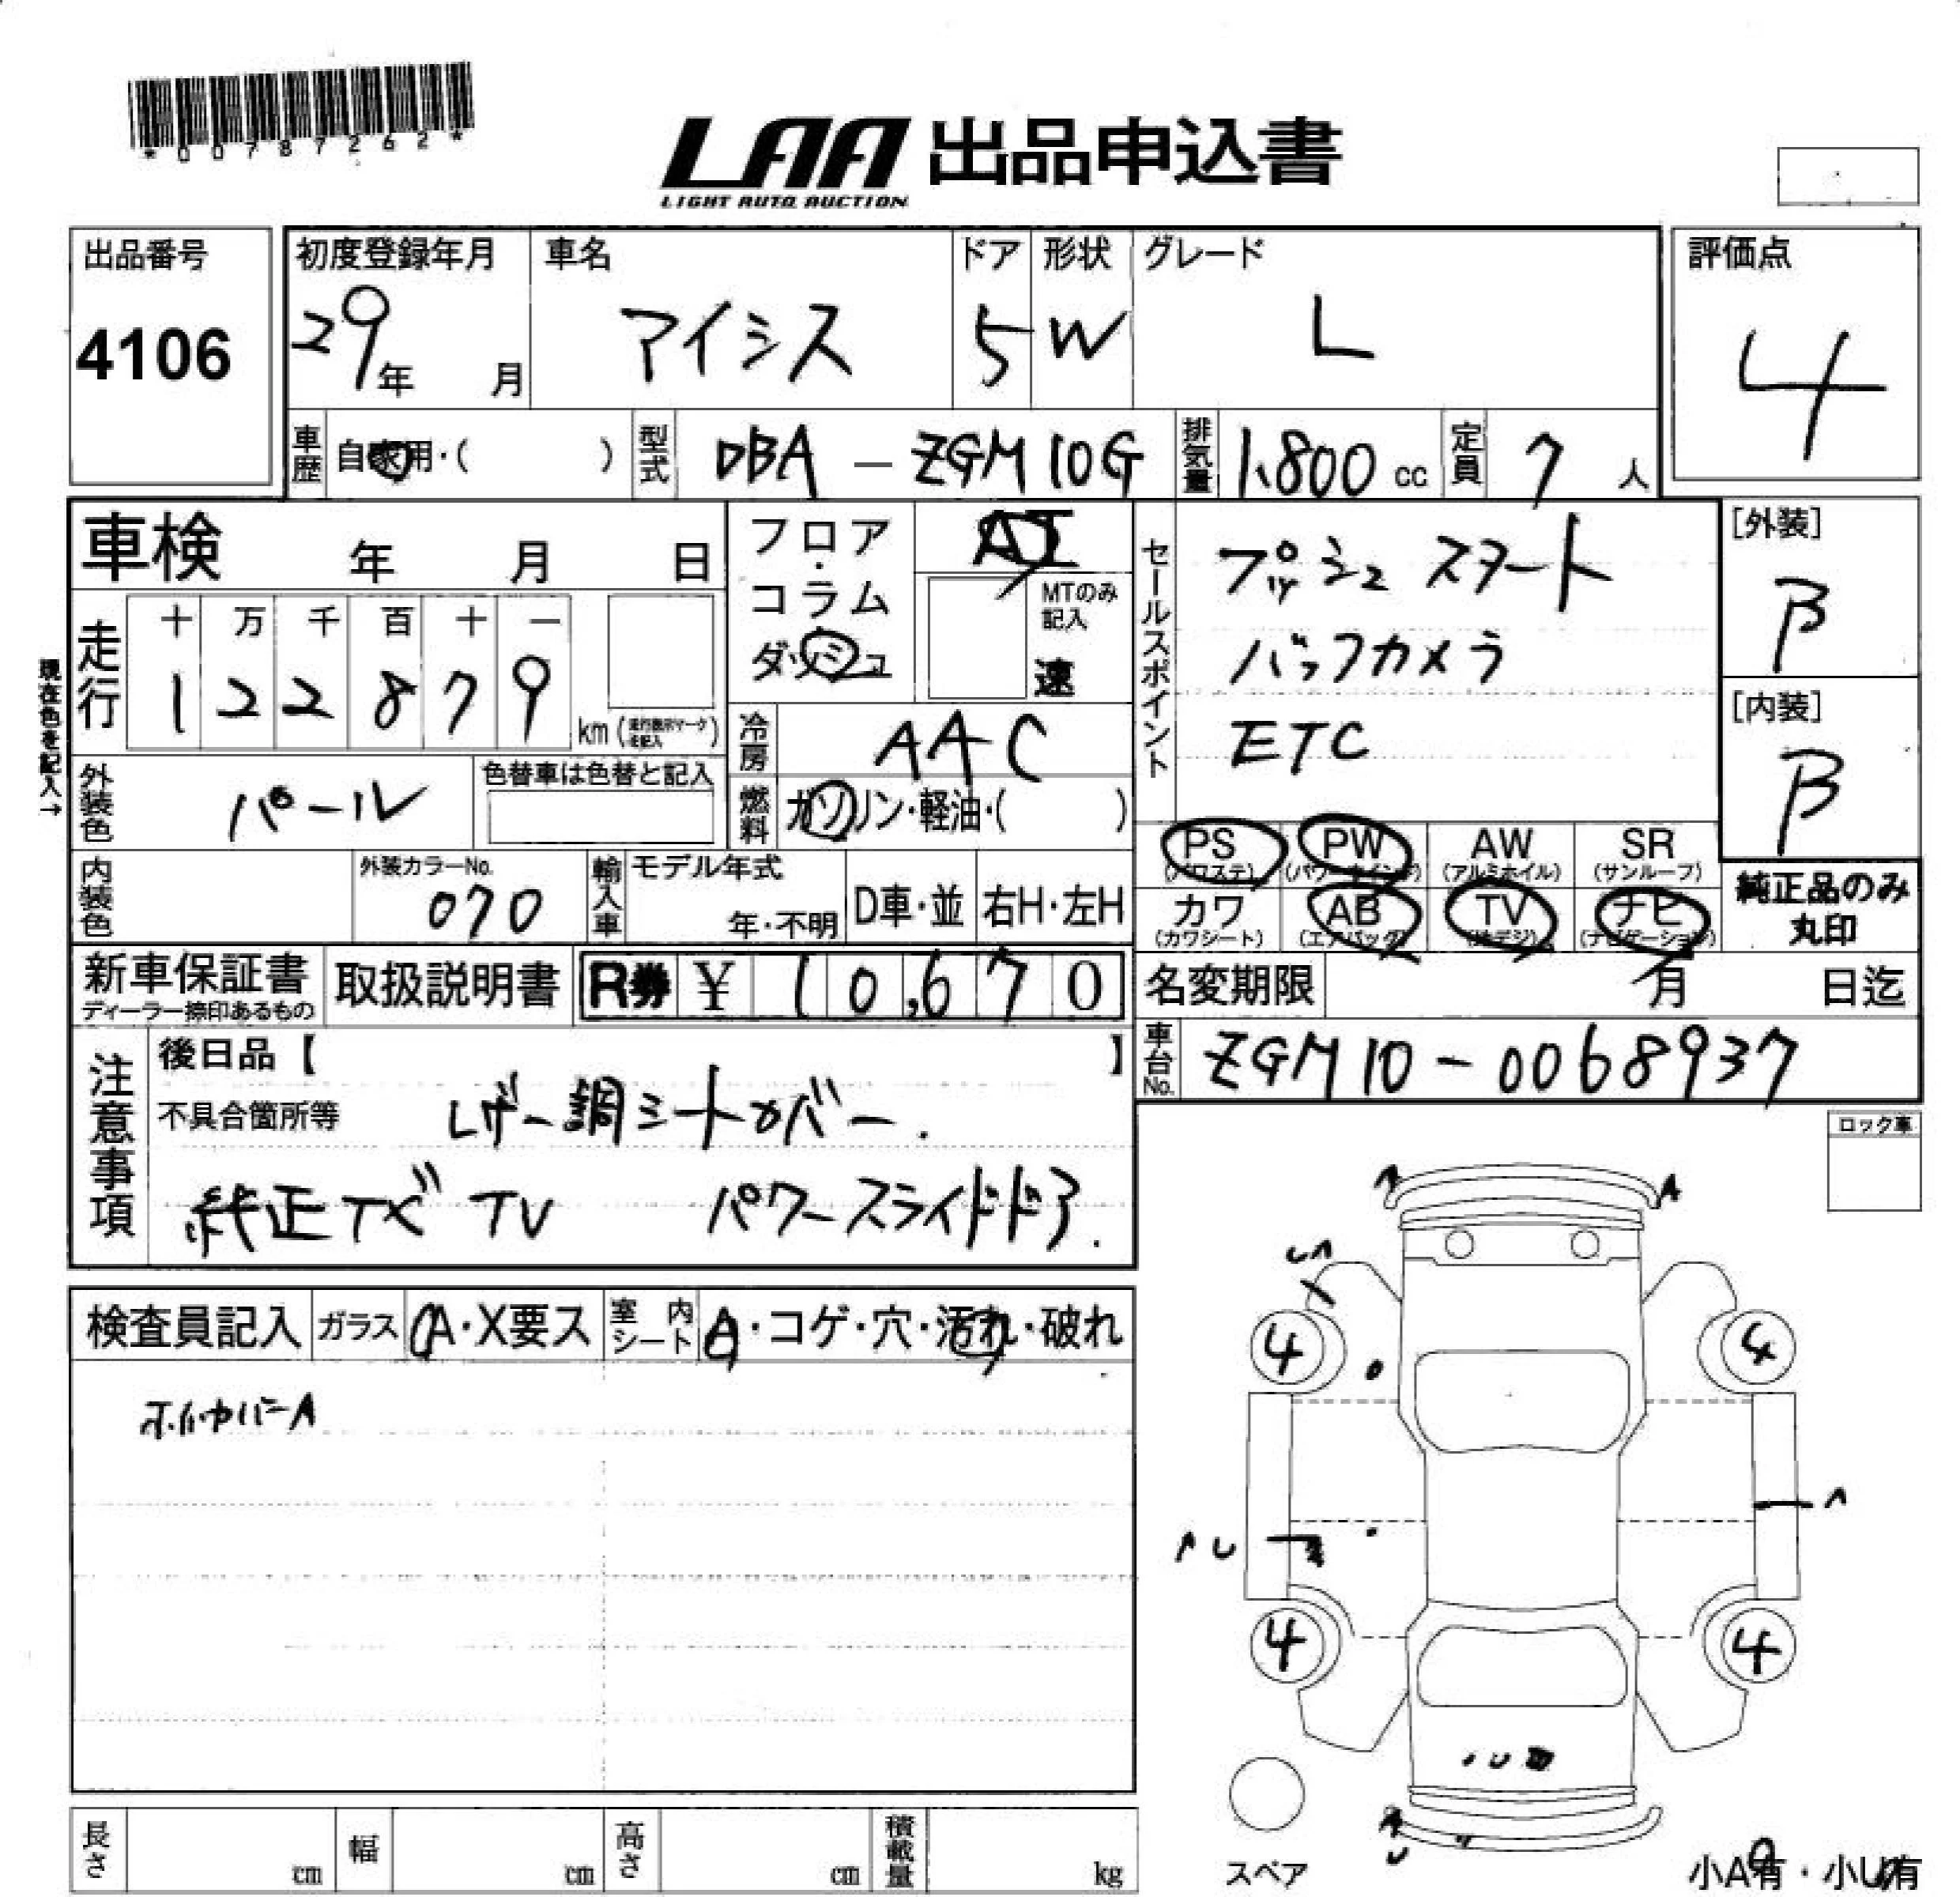 *00787262*
LAA 出品申込書
LIGHT AUTO AUCTION
出品番号
4106
初度登録年月
29年 月
車名
アイシス
ドア
5
形状
W
グレード
L
評価点
4
車歴 自家用・( )
型式 DBA - ZGM10G
排気量 1,800 cc
定員 7 人
車検 年 月 日
フロア・コラム・ダッシュ
AT
MTのみ記入
速
セールスポイント
プッシュスタート
バックカメラ
ETC
[外装]
B
[内装]
B
現在色を記入→
走行
十 万 千 百 十 一
1 2 2 8 7 9
km (走行表示マーク記入)
冷房 AAC
外装色 パール
色替車は色替と記入
燃料 ガソリン・軽油・( )
PS (パワステ)
PW (パワーウインド)
AW (アルミホイル)
SR (サンルーフ)
内装色
外装カラーNo.
070
輸入車
モデル年式
年・不明
D車・並
右H・左H
カワ (カワシート)
AB (エアバック)
TV (地デジ)
ナビ (ナビゲーション)
純正品のみ
丸印
新車保証書
ディーラー捺印あるもの
取扱説明書
R券 ¥ 10,670
名変期限 月 日迄
車台No. ZGM10-0068937
注意事項
後日品【 】
不具合箇所等 レザー調シートカバー.
純正ナビ TV パワースライドドア.
ロック車
検査員記入
ガラス A・X要ス
室内シート A・コゲ・穴・汚れ・破れ
ホイルカバーA
A
A
4
4
4
4
スペア
小A有・小U有
長さ cm
幅 cm
高さ cm
積載量 kg